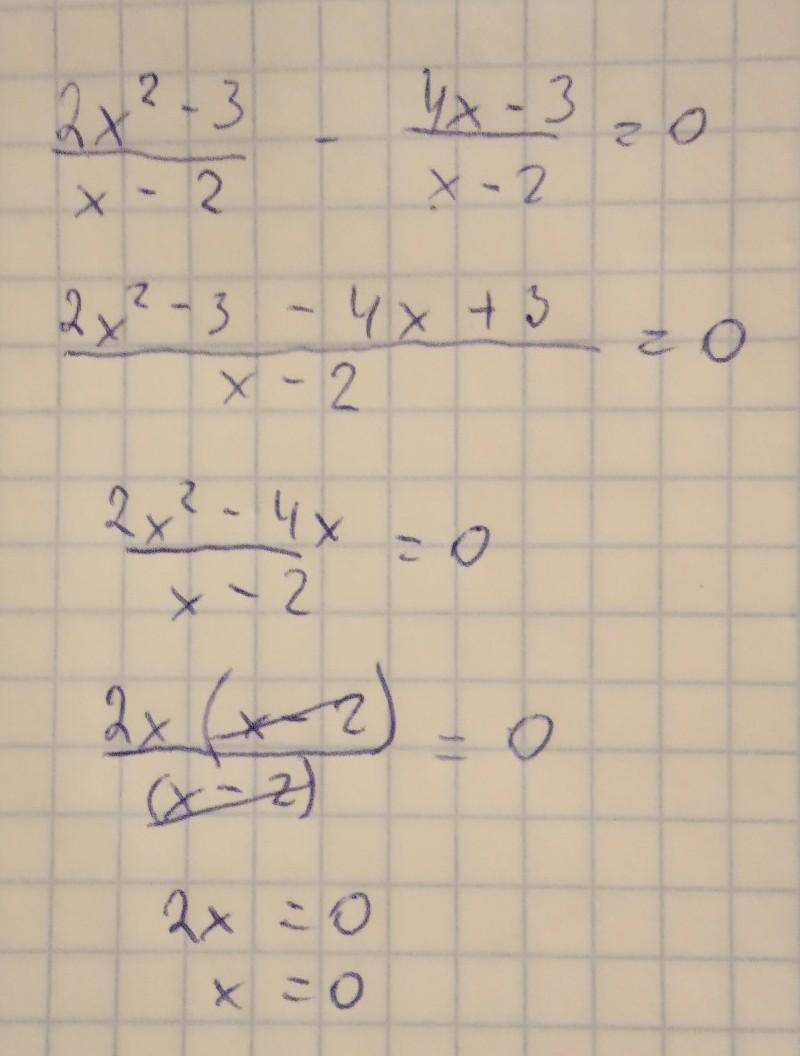 (2x² - 3)/(x - 2) - (4x - 3)/(x - 2) = 0
(2x² - 3 - 4x + 3)/(x - 2) = 0
(2x² - 4x)/(x - 2) = 0
2x (x - 2)/(x - 2) = 0
2x = 0
x = 0